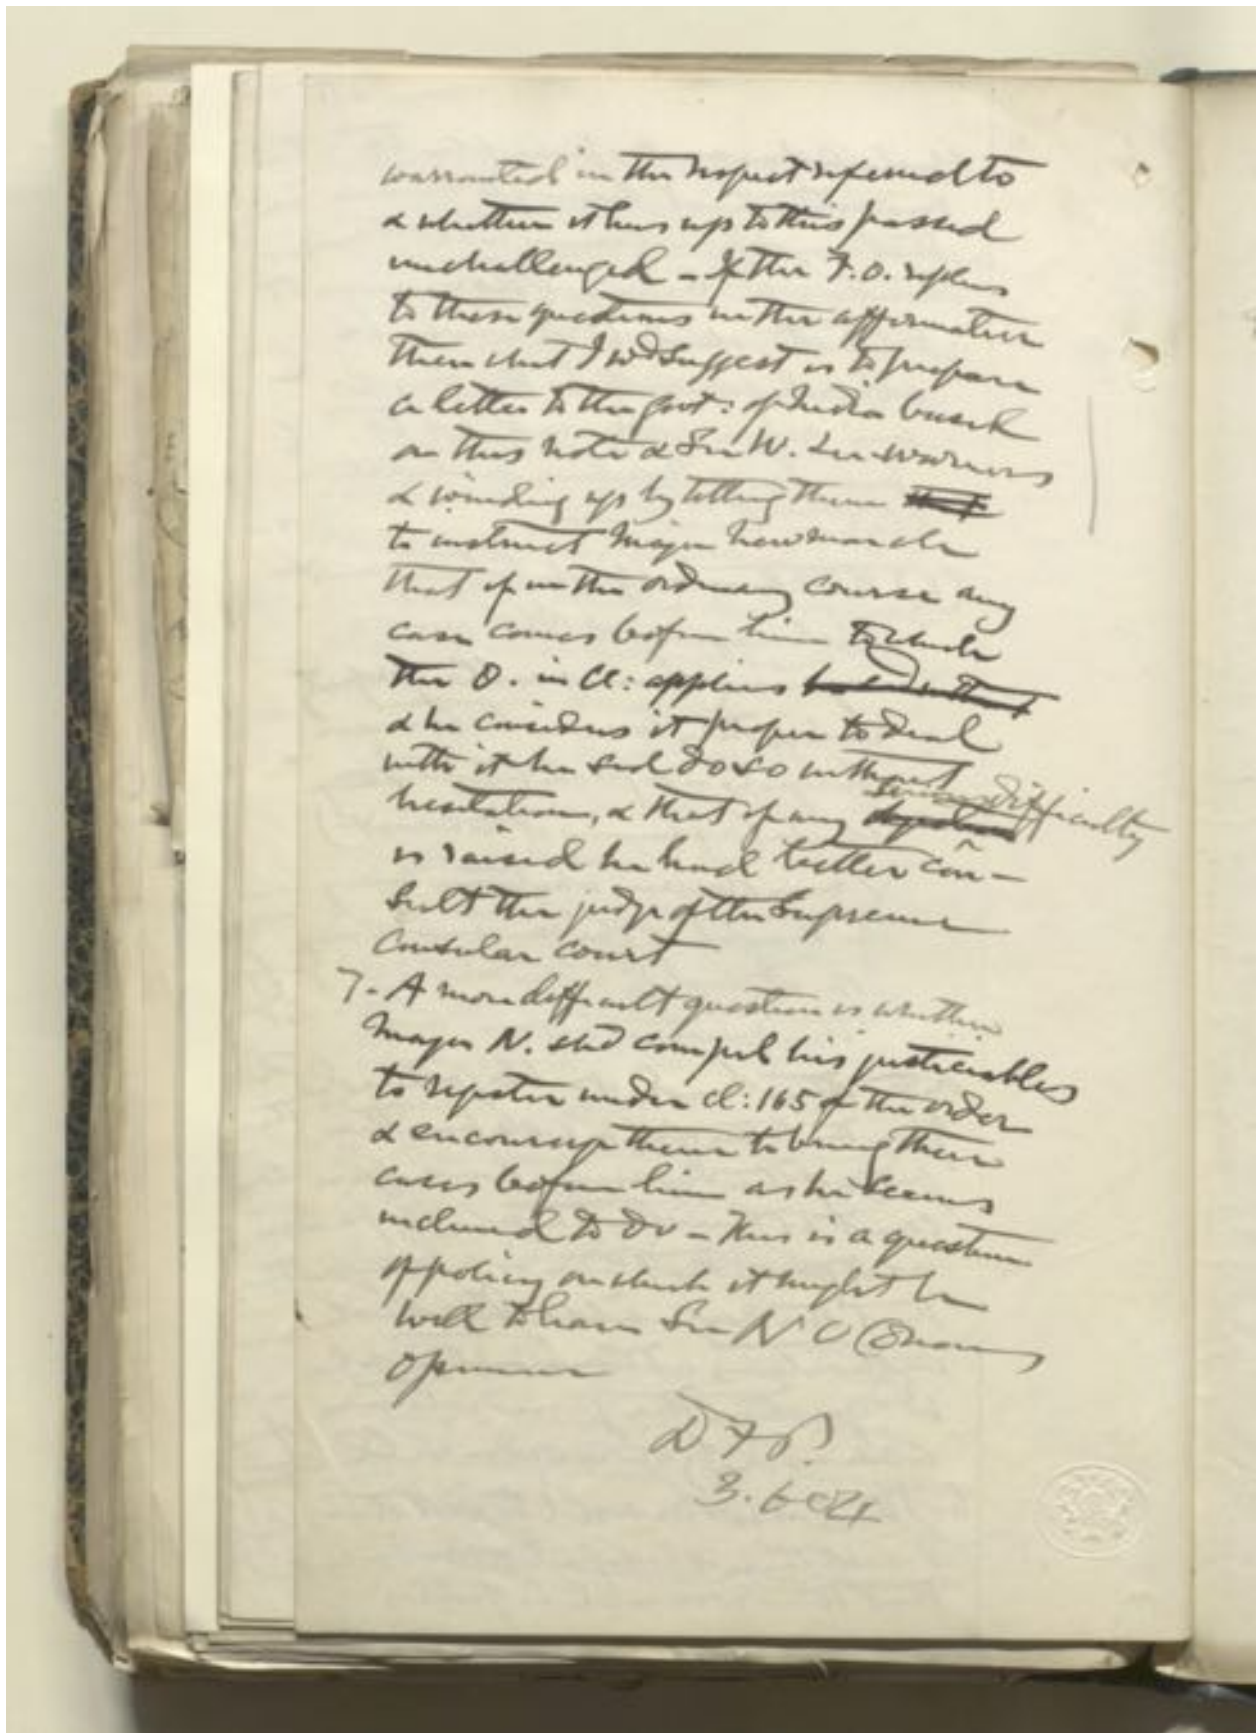 warranted in the respect referred to
& whether it has up to this passed
unchallenged – If the F.O. replies
to these questions in the affirmative
then what I wd suggest is to prepare
a letter to the Govt: of India based
on this note & Sir W. Lee-Warner's
& winding up by telling them that
to instruct Major Newmarch
that if in the ordinary course any
case comes before him to which
the O. in Cl: applies
& he considers it proper to deal
with it he shd do so without
hesitation, & that if any serious difficulty
is raised he had better con-
sult the judge of the Supreme
Consular Court
7. A more difficult question is whether
Major N. shd compel his justiciables
to register under cl: 165 of the order
& encourage them to bring their
cases before him as he seems
inclined to do – This is a question
of policy on which it might be
well to have Sir N O'Conor's
opinion
3.6.04